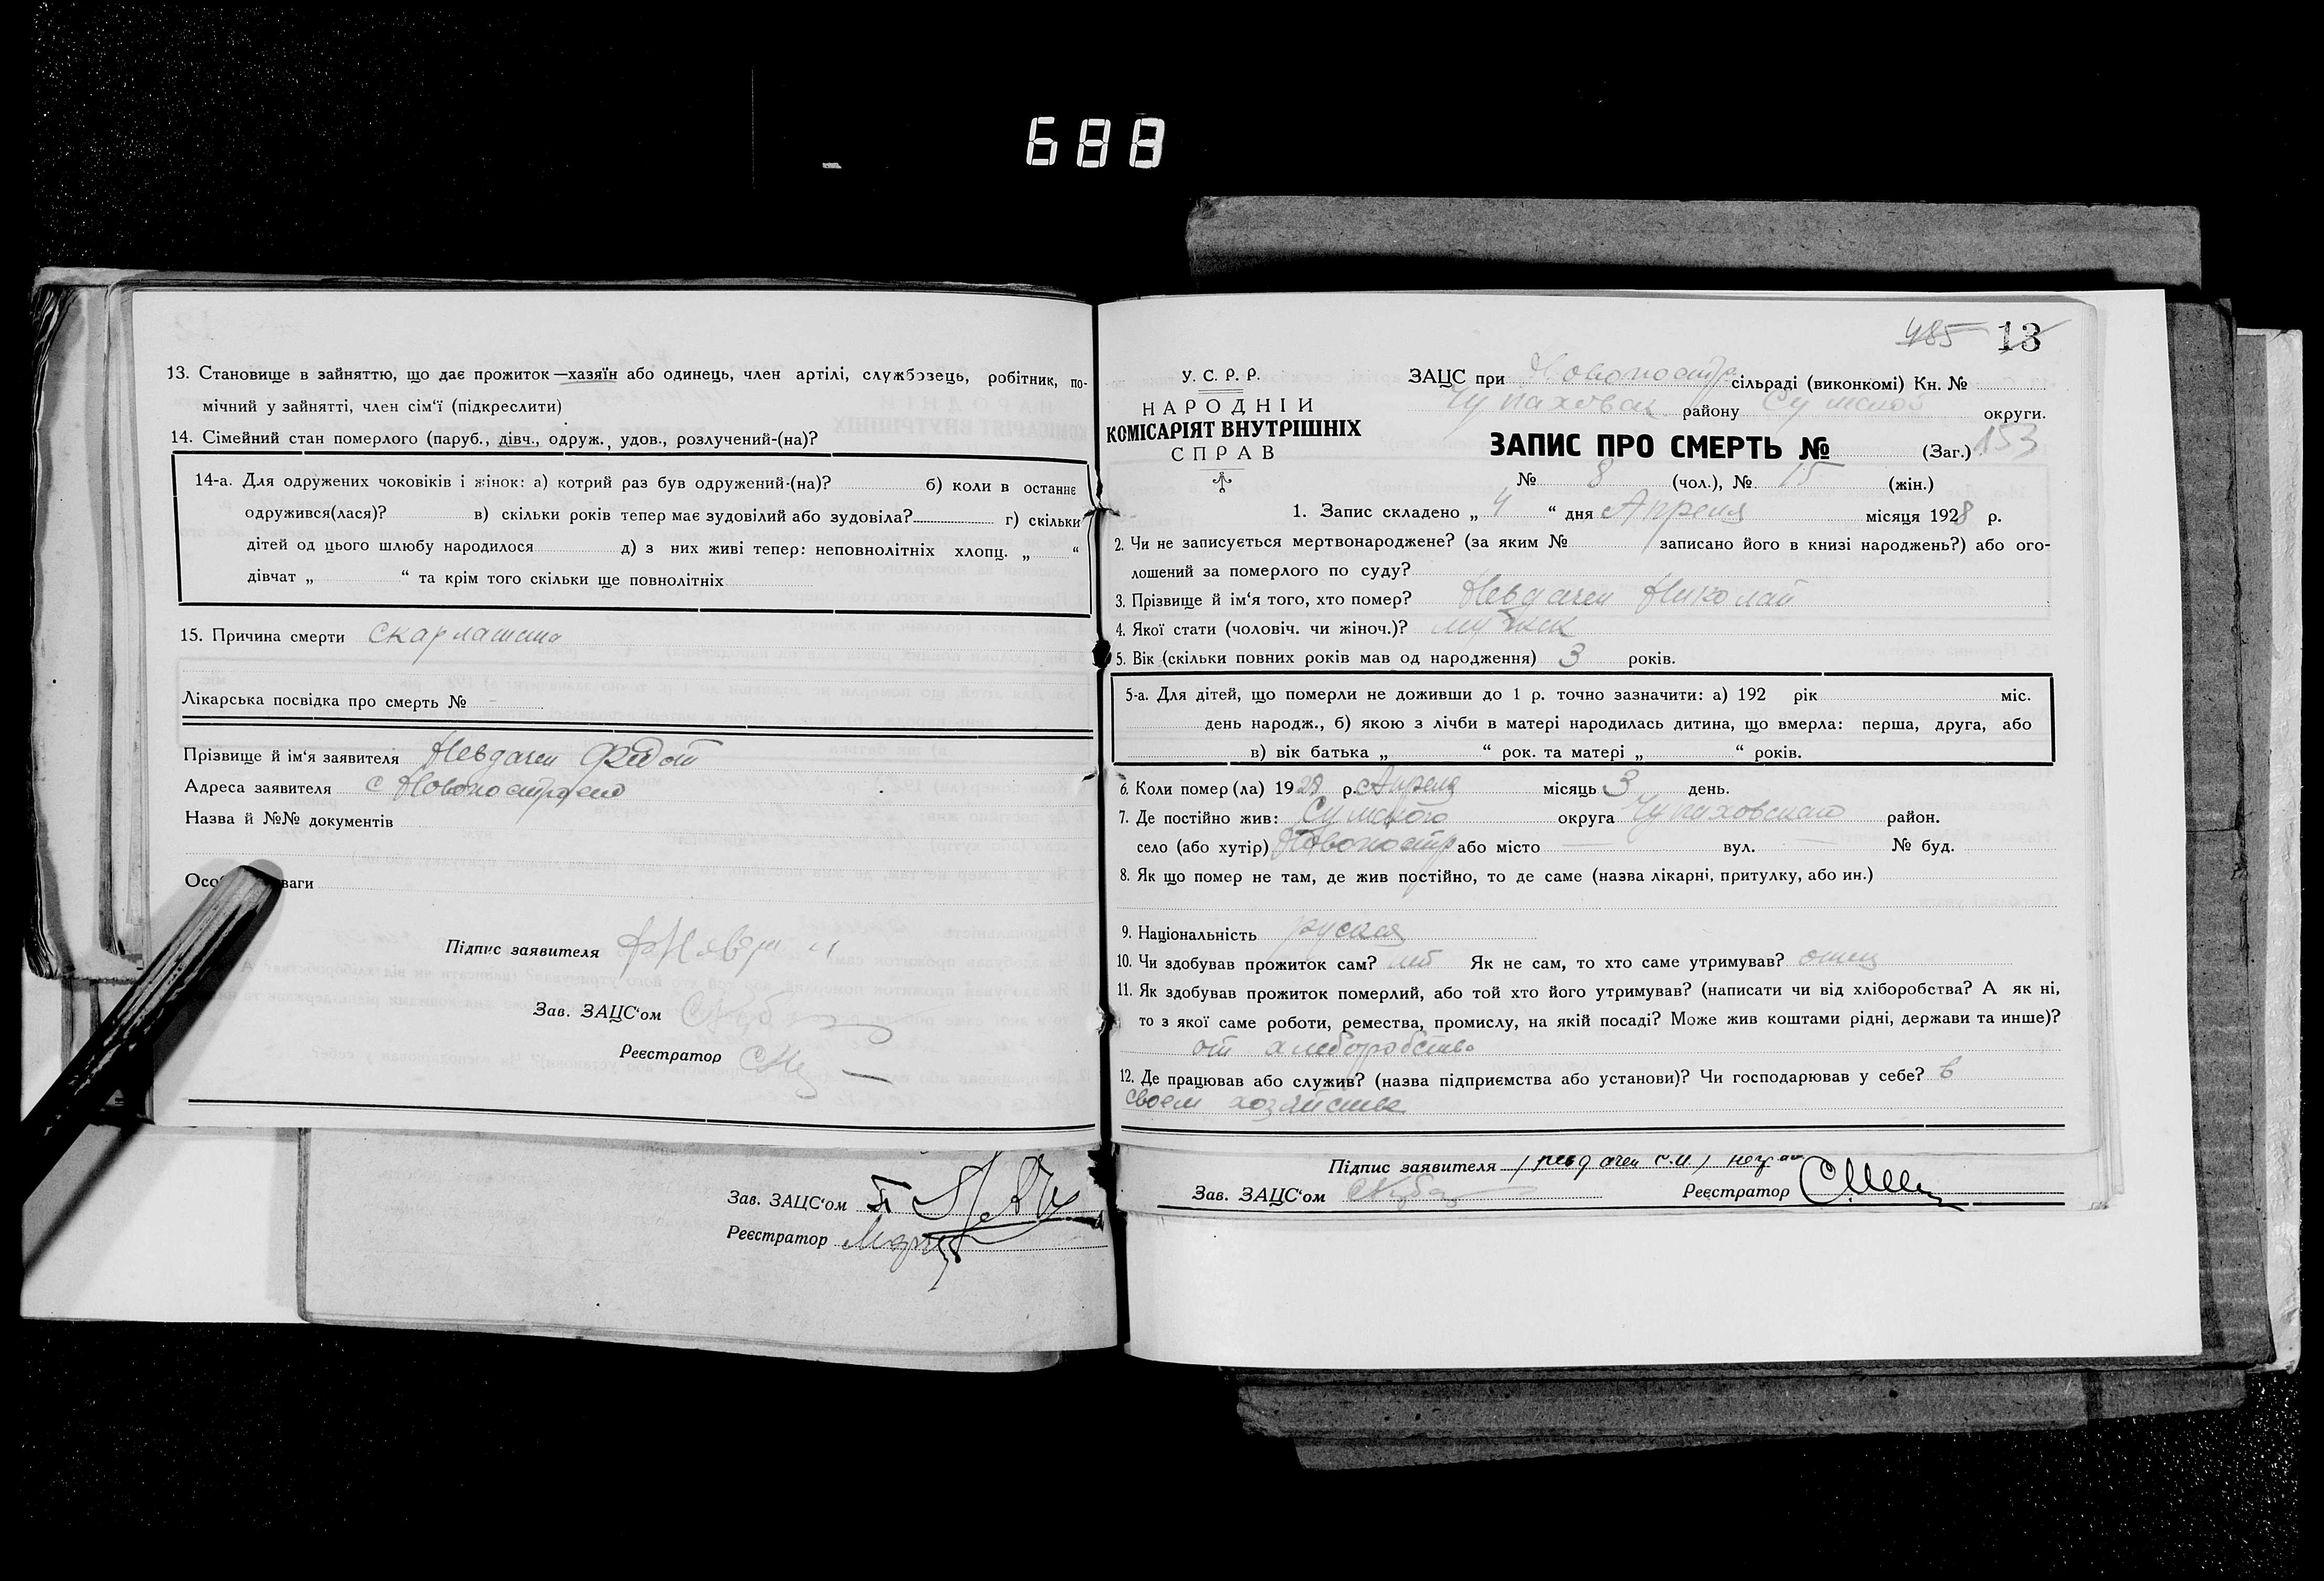 688
13. Становище в зайняттю, що дає прожиток—хазяїн або одинець, член артілі, службовець, робітник, по-
мічний у зайнятті, член сім'ї (підкреслити)
14. Сімейний стан померлого (паруб., дівч., одруж., удов., розлучений-(на)?
14-а. Для одружених чоковіків і жінок: а) котрий раз був одружений-(на)? б) коли в останнє
одружився(лася)? в) скільки років тепер має зудовілий або зудовіла? г) скільки
дітей од цього шлюбу народилося д) з них живі тепер: неповнолітніх хлопц. „ “
дівчат „ “ та крім того скільки ще повнолітніх
15. Причина смерти скарлатина
Лікарська посвідка про смерть №
Прізвище й ім'я заявителя Невдачен Федот
Адреса заявителя с
Назва й №№ документів
Підпис заявителя
Зав. ЗАЦС'ом
Реєстратор
Зав. ЗАЦС'ом
Реєстратор
485 13
У. С. Р. Р.
НАРОДНІЙ
КОМІСАРІЯТ ВНУТРІШНІХ
СПРАВ
ЗАЦС при Новопостр сільраді (виконкомі) Кн. №
Чупаховск району Сумской округи.
ЗАПИС ПРО СМЕРТЬ № (Заг.) 153
№ 8 (чол.), № 15 (жін.)
1. Запис складено „ 4 “ дня Апреля місяця 1928 р.
2. Чи не записується мертвонароджене? (за яким № записано його в книзі народжень?) або ого-
лошений за померлого по суду?
3. Прізвище й ім'я того, хто помер? Невдачен Николай
4. Якої стати (чоловіч. чи жіноч.)? мужск
5. Вік (скільки повних років мав од народження) 3 років.
5-а. Для дітей, що померли не доживши до 1 р. точно зазначити: а) 192 рік міс.
день народж., б) якою з лічби в матері народилась дитина, що вмерла: перша, друга, або
в) вік батька „ “ рок. та матері „ “ років.
6. Коли помер (ла) 1928 р. Апреля місяць 3 день.
7. Де постійно жив: Сумского округа Чупаховского район.
село (або хутір) Новопостр або місто — вул. — № буд.
8. Як що помер не там, де жив постійно, то де саме (назва лікарні, притулку, або ин.)
9. Національність руская
10. Чи здобував прожиток сам? нет Як не сам, то хто саме утримував? отец
11. Як здобував прожиток померлий, або той хто його утримував? (написати чи від хліборобства? А як ні,
то з якої саме роботи, ремества, промислу, на якій посаді? Може жив коштами рідні, держави та инше)?
от хлеборобства
12. Де працював або служив? (назва підприємства або установи)? Чи господарював у себе? в
своем хозяйстве
Підпис заявителя
Зав. ЗАЦС'ом Реєстратор